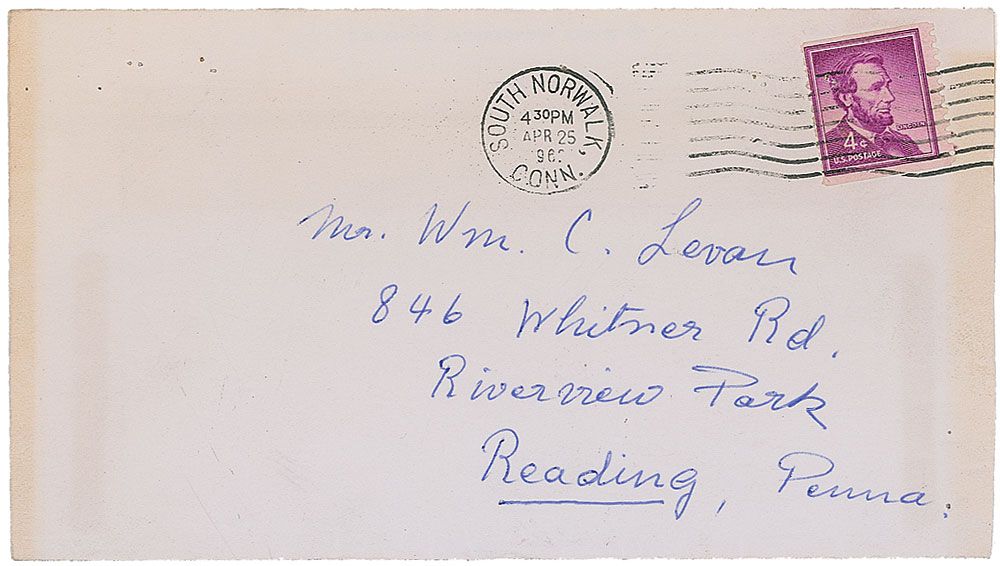 SOUTH NORWALK, CONN.
4 30 PM
APR 25
LINCOLN
4¢
U.S. POSTAGE
Mr. Wm. C. Levan
846 Whitner Rd.
Riverview Park
Reading, Penna.